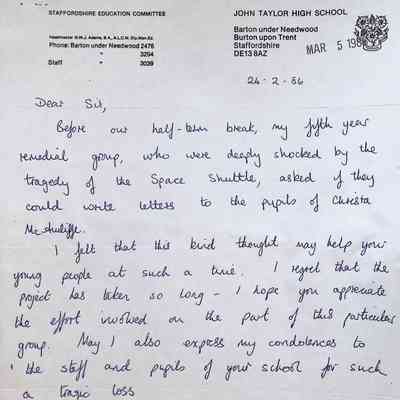 STAFFORDSHIRE EDUCATION COMMITTEE
JOHN TAYLOR HIGH SCHOOL
Headmaster: G.W.J. Adams, B.A., A.L.C.M. Dip.Man.Ed.
Phone: Barton under Needwood 2476
" 3254
Staff " 3039
Barton under Needwood
Burton upon Trent
Staffordshire
DE13 8AZ
MAR 5 198
24-2-86
Dear Sir,
Before our half-term break, my fifth year
remedial group, who were deeply shocked by the
tragedy of the Space Shuttle, asked if they
could write letters to the pupils of Christa
McAuliffe.
I felt that this kind thought may help your
young people at such a time. I regret that the
project has taken so long - I hope you appreciate
the effort involved on the part of this particular
group. May I also express my condolences to
the staff and pupils of your school for such
a tragic loss